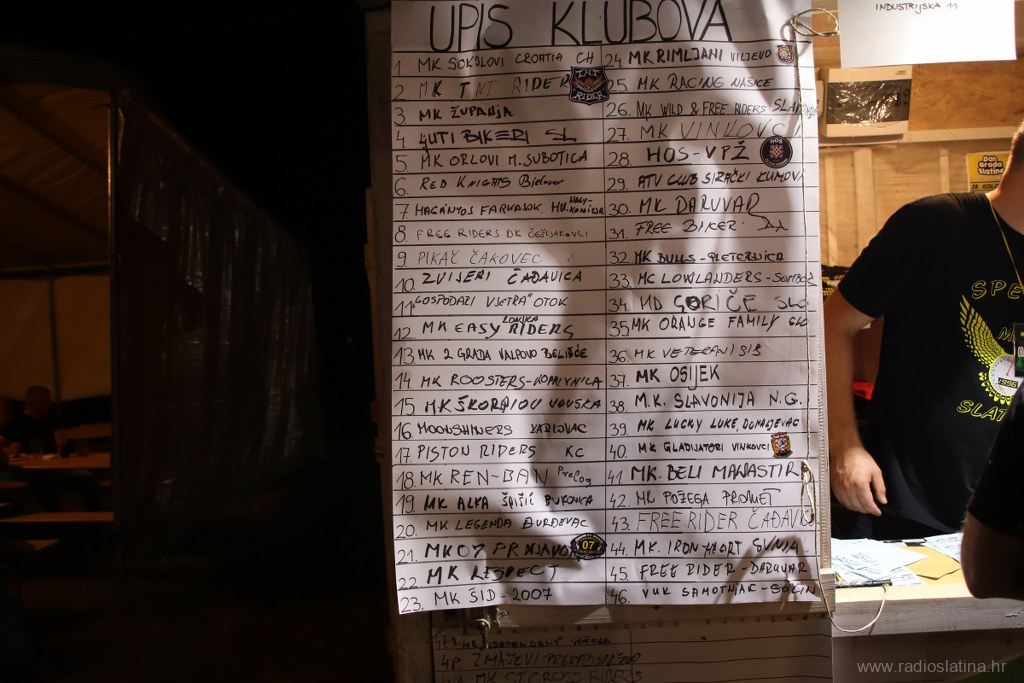 UPIS KLUBOVA
1 MK SOKOLOVI CROATIA CH
2. MK TNT RIDER
3 MK ŽUPANJA
4 ŽUTI BIKERI SL
5. MK ORLOVI M. SUBOTICA
6. RED KNIGHTS Bjelovar
7 MAGÁNYOS FARKASOK. HU. NAGY-KANIZSA
8. FREE RIDERS DK
9 PIKAČ ČAKOVEC
10. ZVIJERI ČAĐAVICA
11. "GOSPODARI VJETRA" OTOK
12. MK EASY RIDERS LONJKA
13 MK 2 GRADA VALPOVO BELIŠĆE
14 MK ROOSTERS-KOPRIVNICA
15 MK ŠKORPION
16 MOONSHINERS KARLOVAC
17 PISTON RIDERS KC
18. MK REN-BAN Prelog
19 MK ALKA BUKOVICA
20. MK LEGENDA ĐURĐEVAC
21. MK 07 PRNJAVOR
22 MK RESPECT
23. MK ŠID-2007
24 MK RIMLJANI VILJEVO
25. MK RACING NAŠICE
26. MK WILD & FREE RIDERS
27. MK VINKOVCI
28. HOS-VPŽ
29. ATV CLUB SIRAČKI KUMOVI
30. MK DARUVAR
31. FREE BIKER
32 MK BULLS-PLETERNICA
33. MC LOWLANDERS-SOMBOR
34. MD GORIČE SLO
35 MK ORANGE FAMILY SLO
36. MK VETERANI SIB
37. MK OSIJEK
38. M.K. SLAVONIJA N.G.
39 MK LUCKY LUKE, DOMALJEVAC
40. MK GLADIJATORI VINKOVCI
41 MK. BELI MANASTIR
42. MK POŽEGA PROMET
43. FREE RIDER ČAĐAVICA
44. MK. IRON HEART SUNJA
45. FREE RIDER-DARUVAR
46. VUK SAMOTNJAK-SOLIN
TNT RIDER
HOS
07
INDUSTRIJSKA 11
Dan Grada Slatine
SPE
1996
SLAT
www.radioslatina.hr